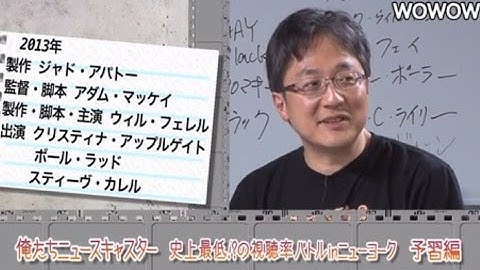 WOWOW
2013年
製作 ジャド・アパトー
監督・脚本 アダム・マッケイ
製作・脚本・主演 ウィル・フェレル
出演 クリスティナ・アップルゲイト
ポール・ラッド
スティーヴ・カレル
フェイ
ポーラー
ラック
C・ライリー
俺たちニュースキャスター 史上最低!?の視聴率バトルinニューヨーク 予習編